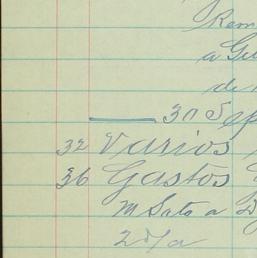 Rem
a Gu
de
30 Sep
32 Varios
36 Gastos
M Sato a D
2 d/a